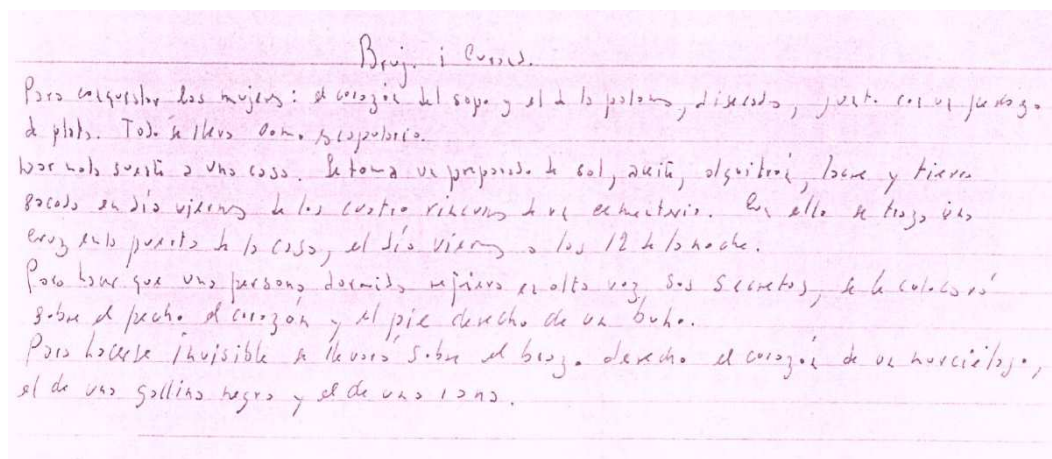 Bruj. i Curand.
Para conquistar las mujeres: el corazón del sapo y el de la paloma, disecado, junto con un pedazo
de plata. Todo se lleva como escapulario.
Dar mala suerte a una casa. Se toma un preparado de sal, aceite, alquitrán, lacre y tierra
sacada en día viernes de los cuatro rincones de un cementerio. Con ello se traza una
cruz en la puerta de la casa, el día viernes a las 12 de la noche.
Para hacer que una persona dormida refiera en alta voz sus secretos, se le colocará
sobre el pecho el corazón y el pie derecho de un buho.
Para hacerse invisible se llevará sobre el brazo derecho el corazón de un murciélago,
el de una gallina negra y el de una rana.